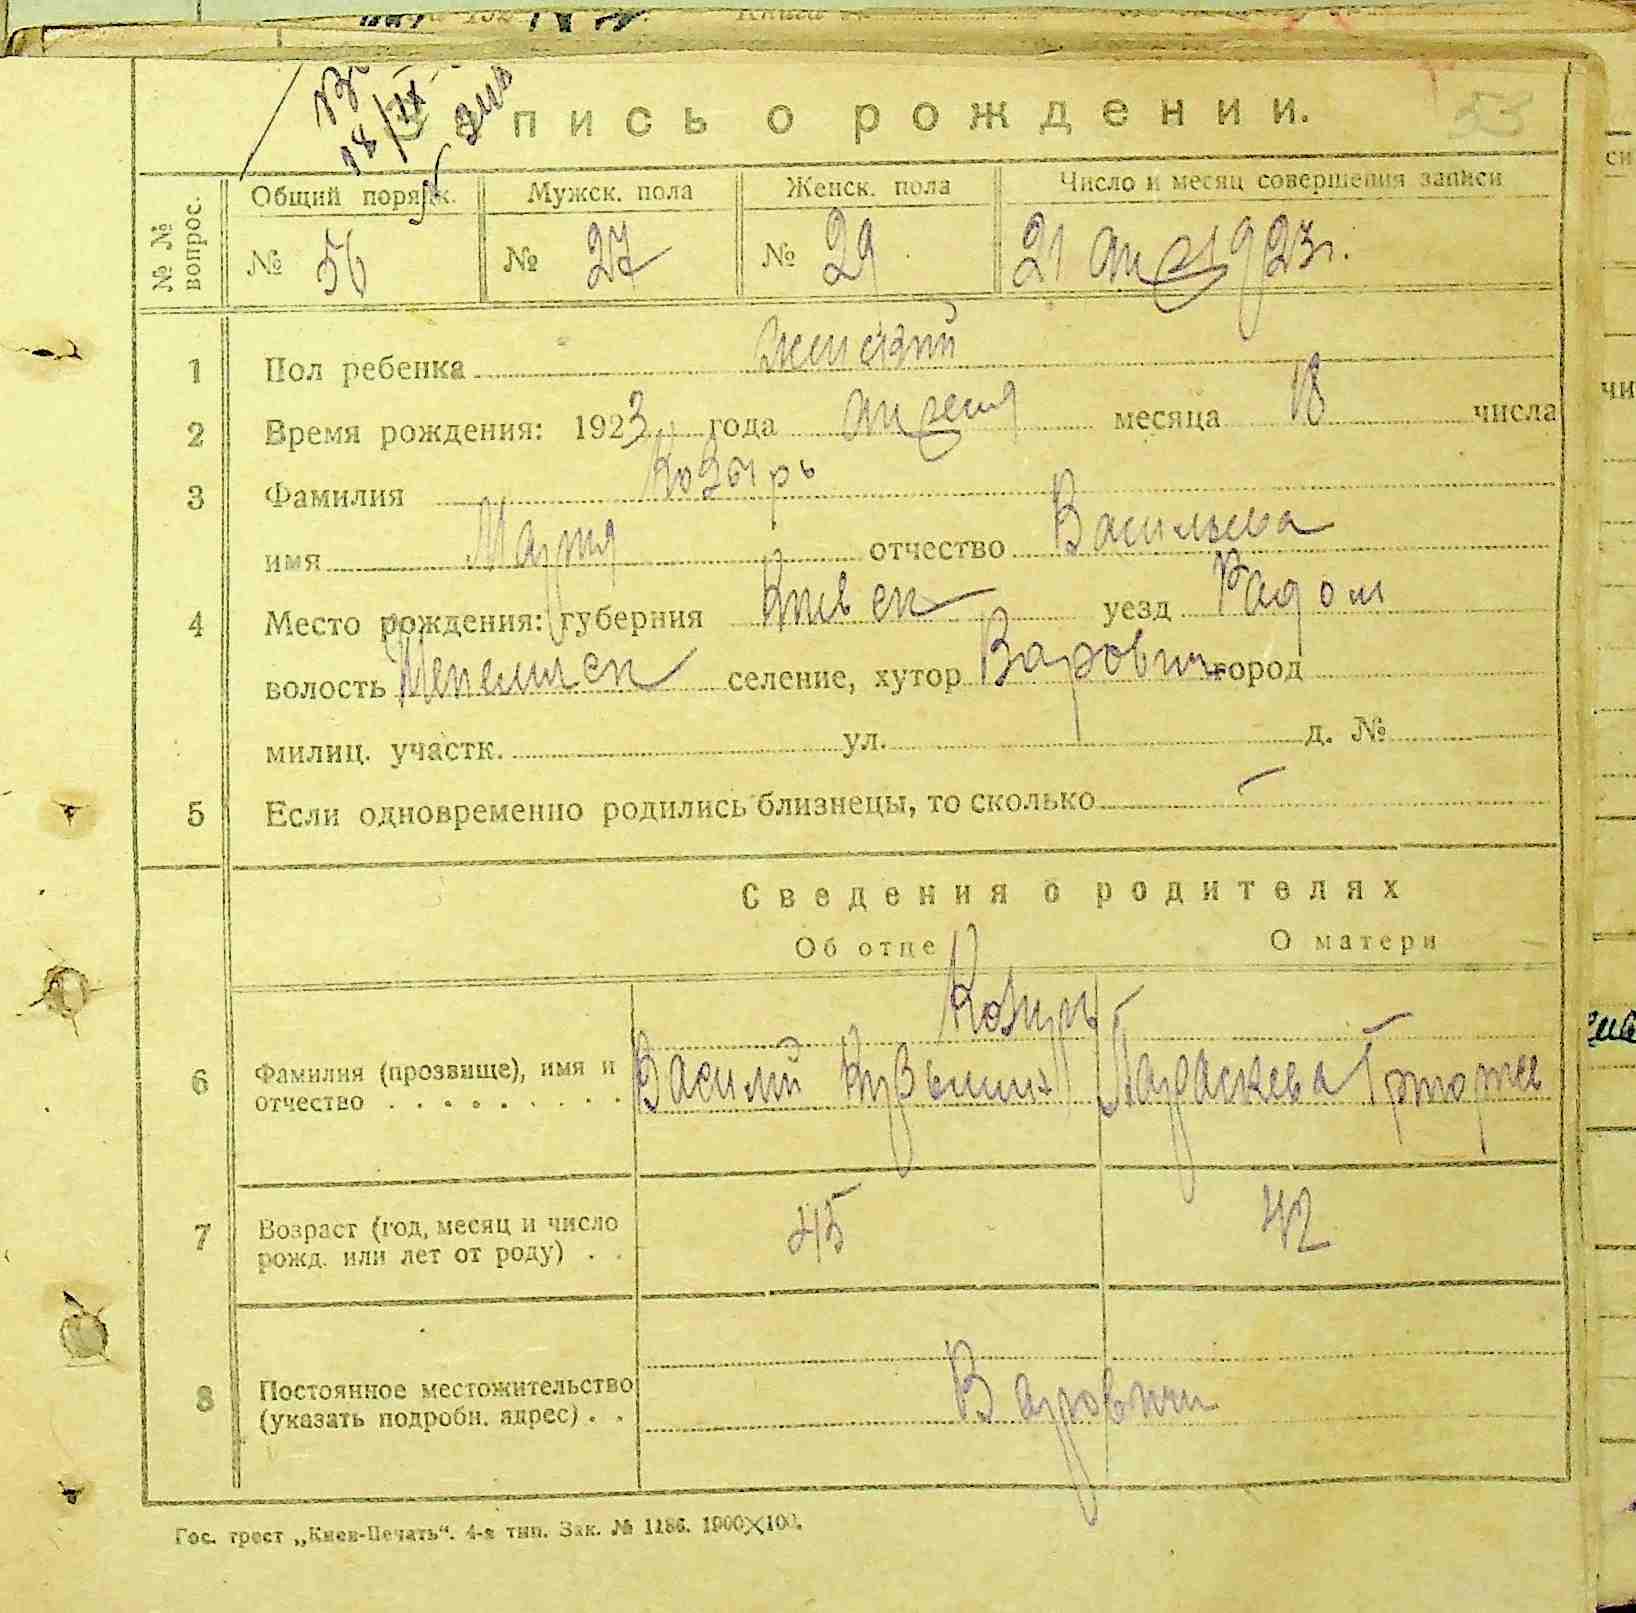 53
Запись о рождении.
№ № вопрос.
Общий порядк. Мужск. пола Женск. пола Число и месяц совершения записи
№ 56 № 27 № 29 21 апреля 1923 г.
1 Пол ребенка женский
2 Время рождения: 1923 года апреля месяца 18 числа
3 Фамилия Козырь
имя Мария отчество Васильева
4 Место рождения: губерния Киевск уезд Радом
волость селение, хутор Варовичи город
милиц. участк. ул. д. №
5 Если одновременно родились близнецы, то сколько –
Сведения о родителях
Об отце О матери
Козырь
6 Фамилия (прозвище), имя и отчество Василий Кузьмин Параскева Григорьев
7 Возраст (год, месяц и число рожд. или лет от роду) 45 42
8 Постоянное местожительство (указать подробн. адрес) Варовичи
Гос. трест „Киев-Печать“. 4-я тип. Зак. № 1186. 1900×100.